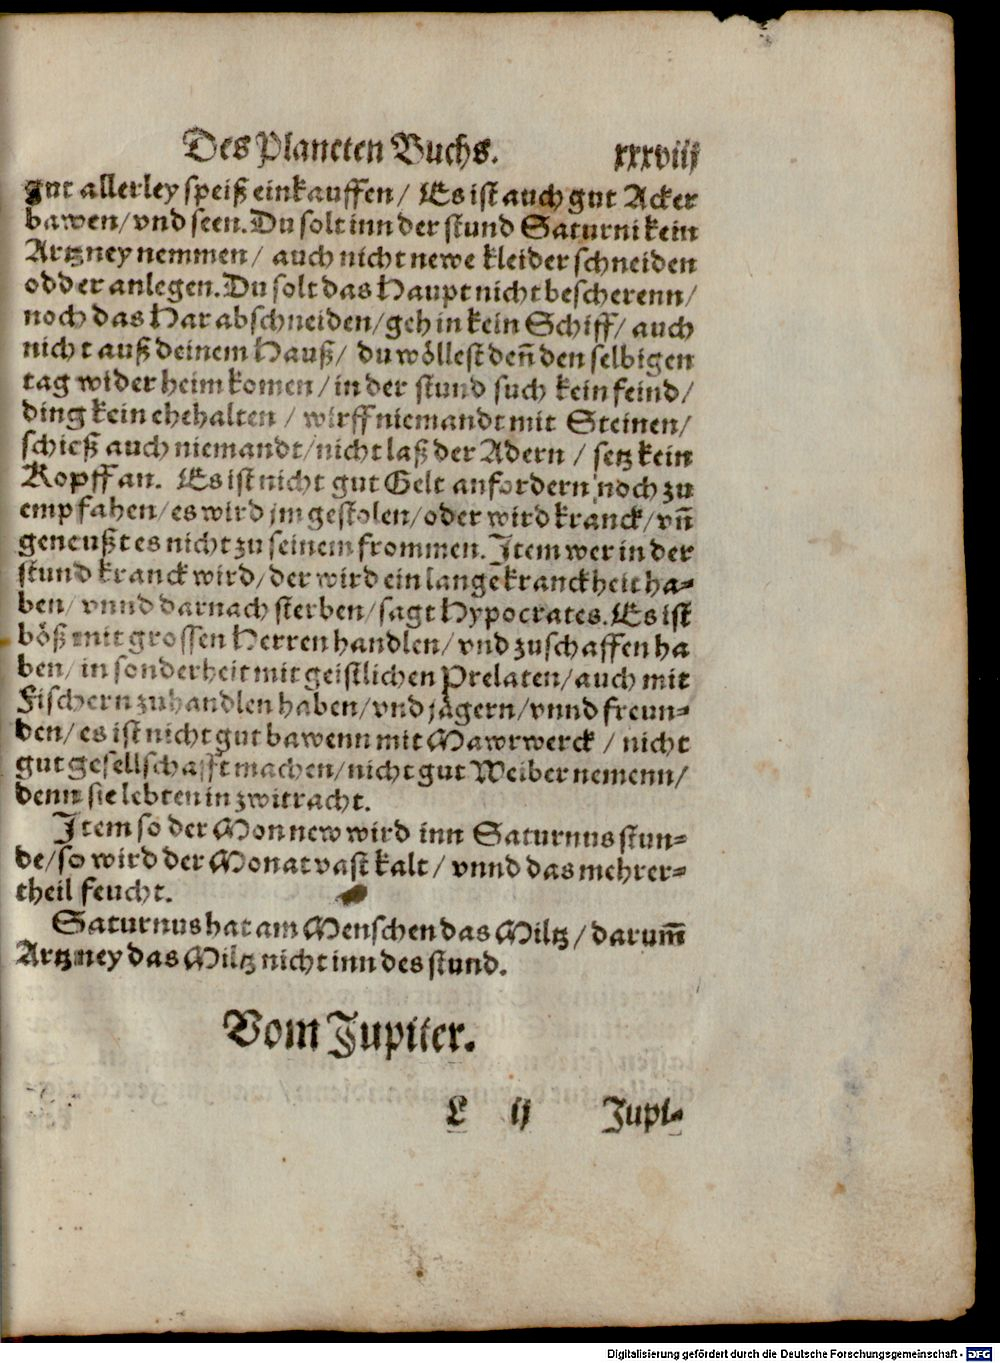 Des Planeten Buchs. xxxviij
gut allerley speiß einkauffen/ Es ist auch gut Acker
bawen/ vnd seen. Du solt inn der stund Saturni kein
Artzney nemmen/ auch nicht newe kleider schneiden
odder anlegen. Du solt das Haupt nicht bescherenn/
noch das Har abschneiden/ geh in kein Schiff/ auch
nicht auß deinem Hauß/ du wöllest deñ den selbigen
tag wider heim komen/ in der stund such kein feind/
ding kein ehehalten/ wirff niemandt mit Steinen/
schieß auch niemandt/ nicht laß der Adern/ setz kein
Kopff an. Es ist nicht gut Gelt anfordern noch zu
empfahen/ es wird jm gestolen/ oder wird kranck/ vñ
geneußt es nicht zu seinem frommen. Item wer in der
stund kranck wird/ der wird ein lange kranckheit ha-
ben/ vnnd darnach sterben/ sagt Hypocrates. Es ist
böß mit grossen Herren handlen/ vnd zuschaffen ha
ben/ in sonderheit mit geistlichen Prelaten/ auch mit
Fischern zuhandlen haben/ vnd jägern/ vnnd freun-
den/ es ist nicht gut bawenn mit Mawrwerck/ nicht
gut gesellschafft machen/ nicht gut Weiber nemenn/
denn sie lebten in zwitracht.
Item so der Mon new wird inn Saturnus stun-
de/ so wird der Monat vast kalt/ vnnd das mehrer-
theil feucht.
Saturnus hat am Menschen das Miltz/ darum̃
Artzney das Miltz nicht inn des stund.
Vom Jupiter.
L ij Jupi-
Digitalisierung gefördert durch die Deutsche Forschungsgemeinschaft - DFG